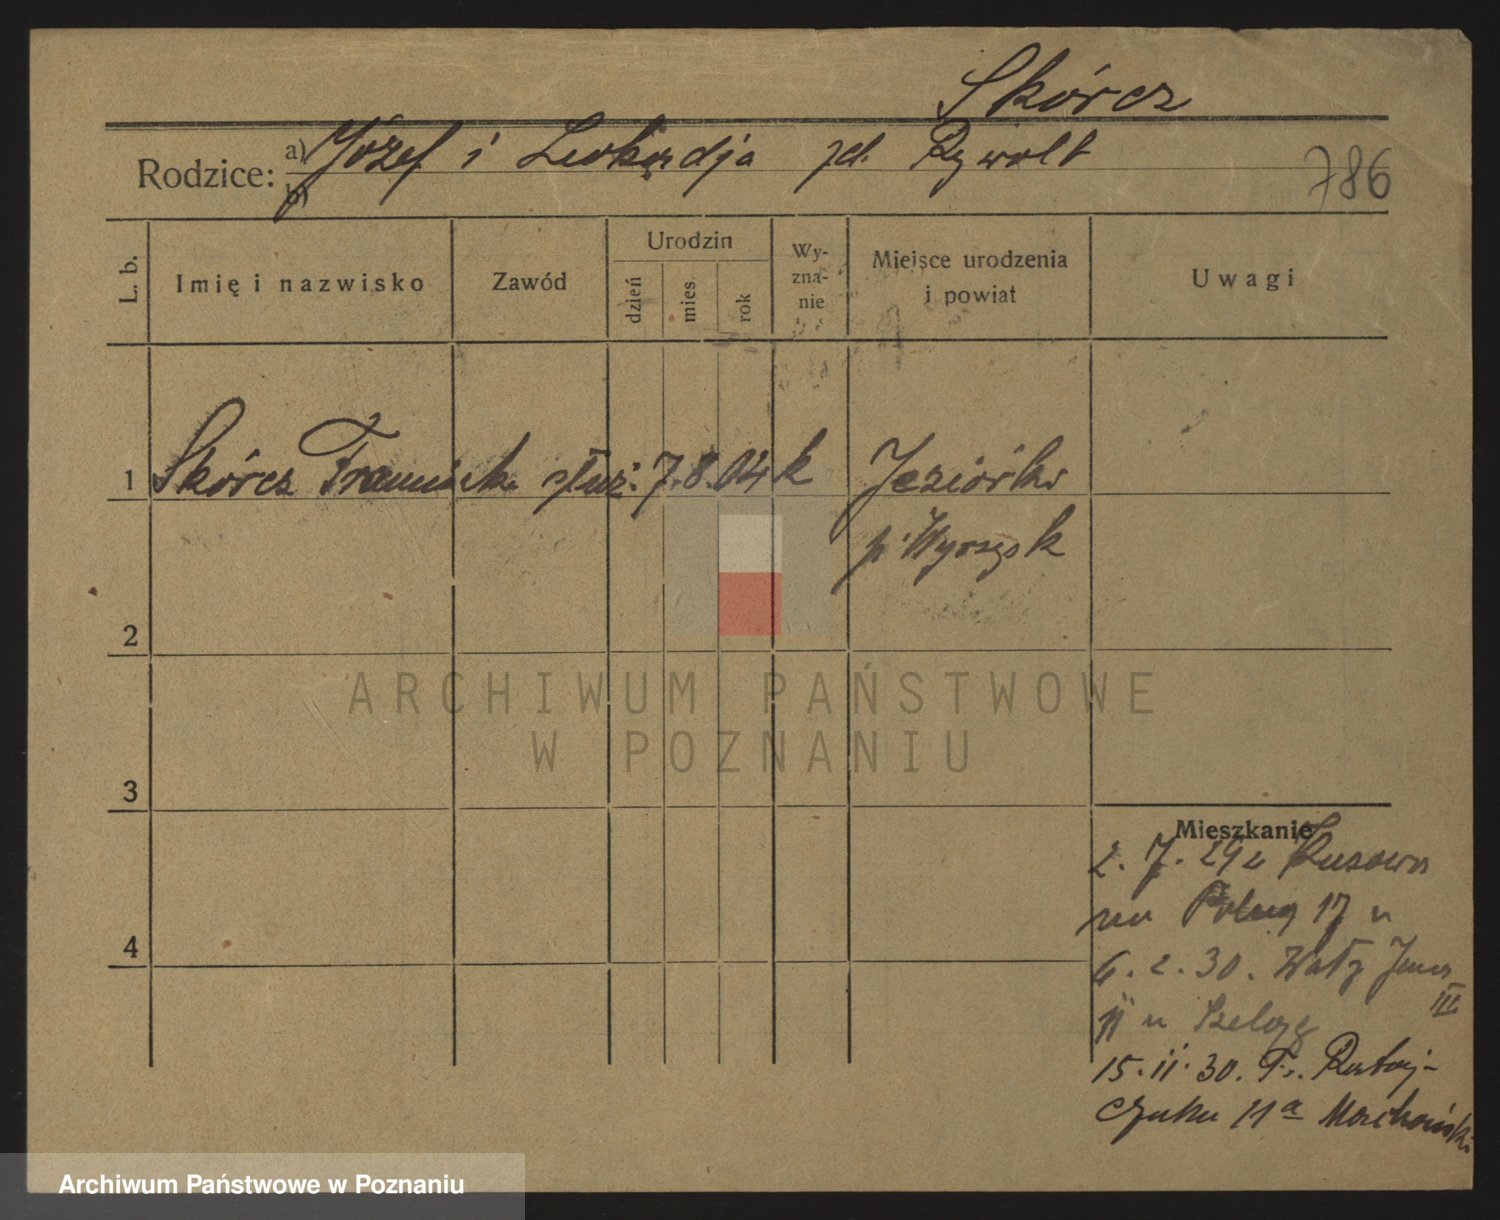 Skórcz
Rodzice: a) Józef i Leokadja zd. Rywolt
b)
786
L. b. Imię i nazwisko Zawód Urodzin dzień mies. rok Wy-zna-nie Miejsce urodzenia i powiat Uwagi
1 Skórcz Franciszek służ. 7. 8. 04 k Jeziórki
p. Wyrzysk
2
3
4
ARCHIWUM PAŃSTWOWE
W POZNANIU
Mieszkanie
2. 7. 29 z
17 u
6. 2. 30. Wały Jana III
11 u Szeląg
15. 11. 30. Fr. Rataj-
czaka 11a
Archiwum Państwowe w Poznaniu